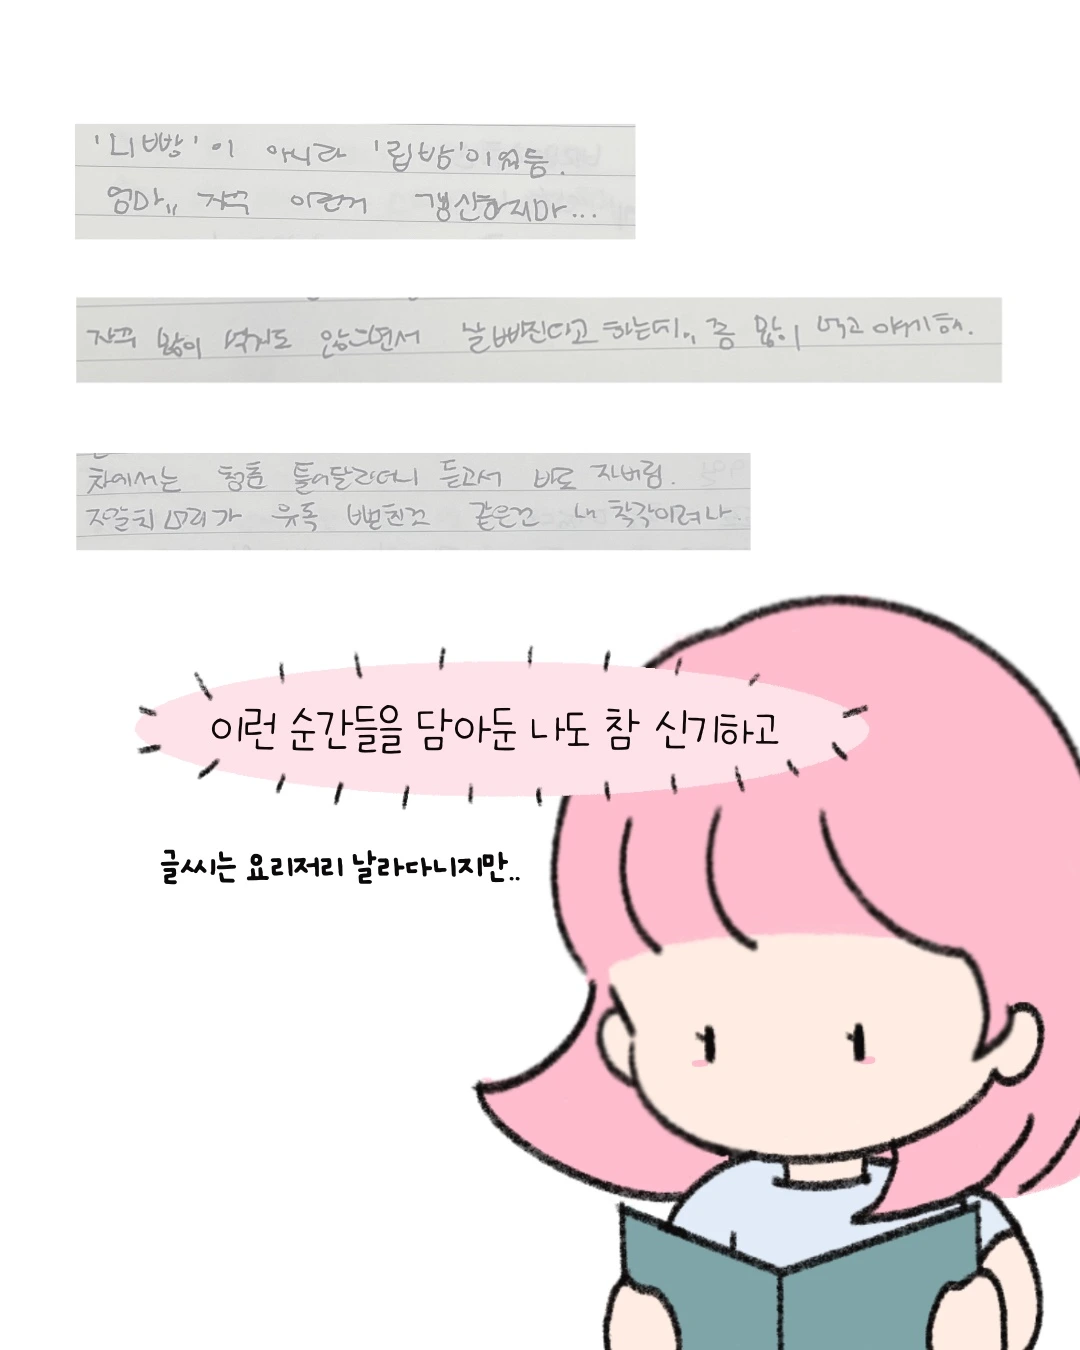 '니빵'이 아니라 '립밤'이었듬.
엄마,, 자꾸 이런거 갱신하지마...
자꾸 많이 먹지도 않으면서 살빠진다고 하는데,, 좀 많이 먹고 얘기해.
차에서는 청춘 틀어달라더니 듣고서 바로 자버림.
자갈치 머리가 유독 뻗친것 같은건 내 착각이려나.
이런 순간들을 담아둔 나도 참 신기하고
글씨는 요리저리 날라다니지만..